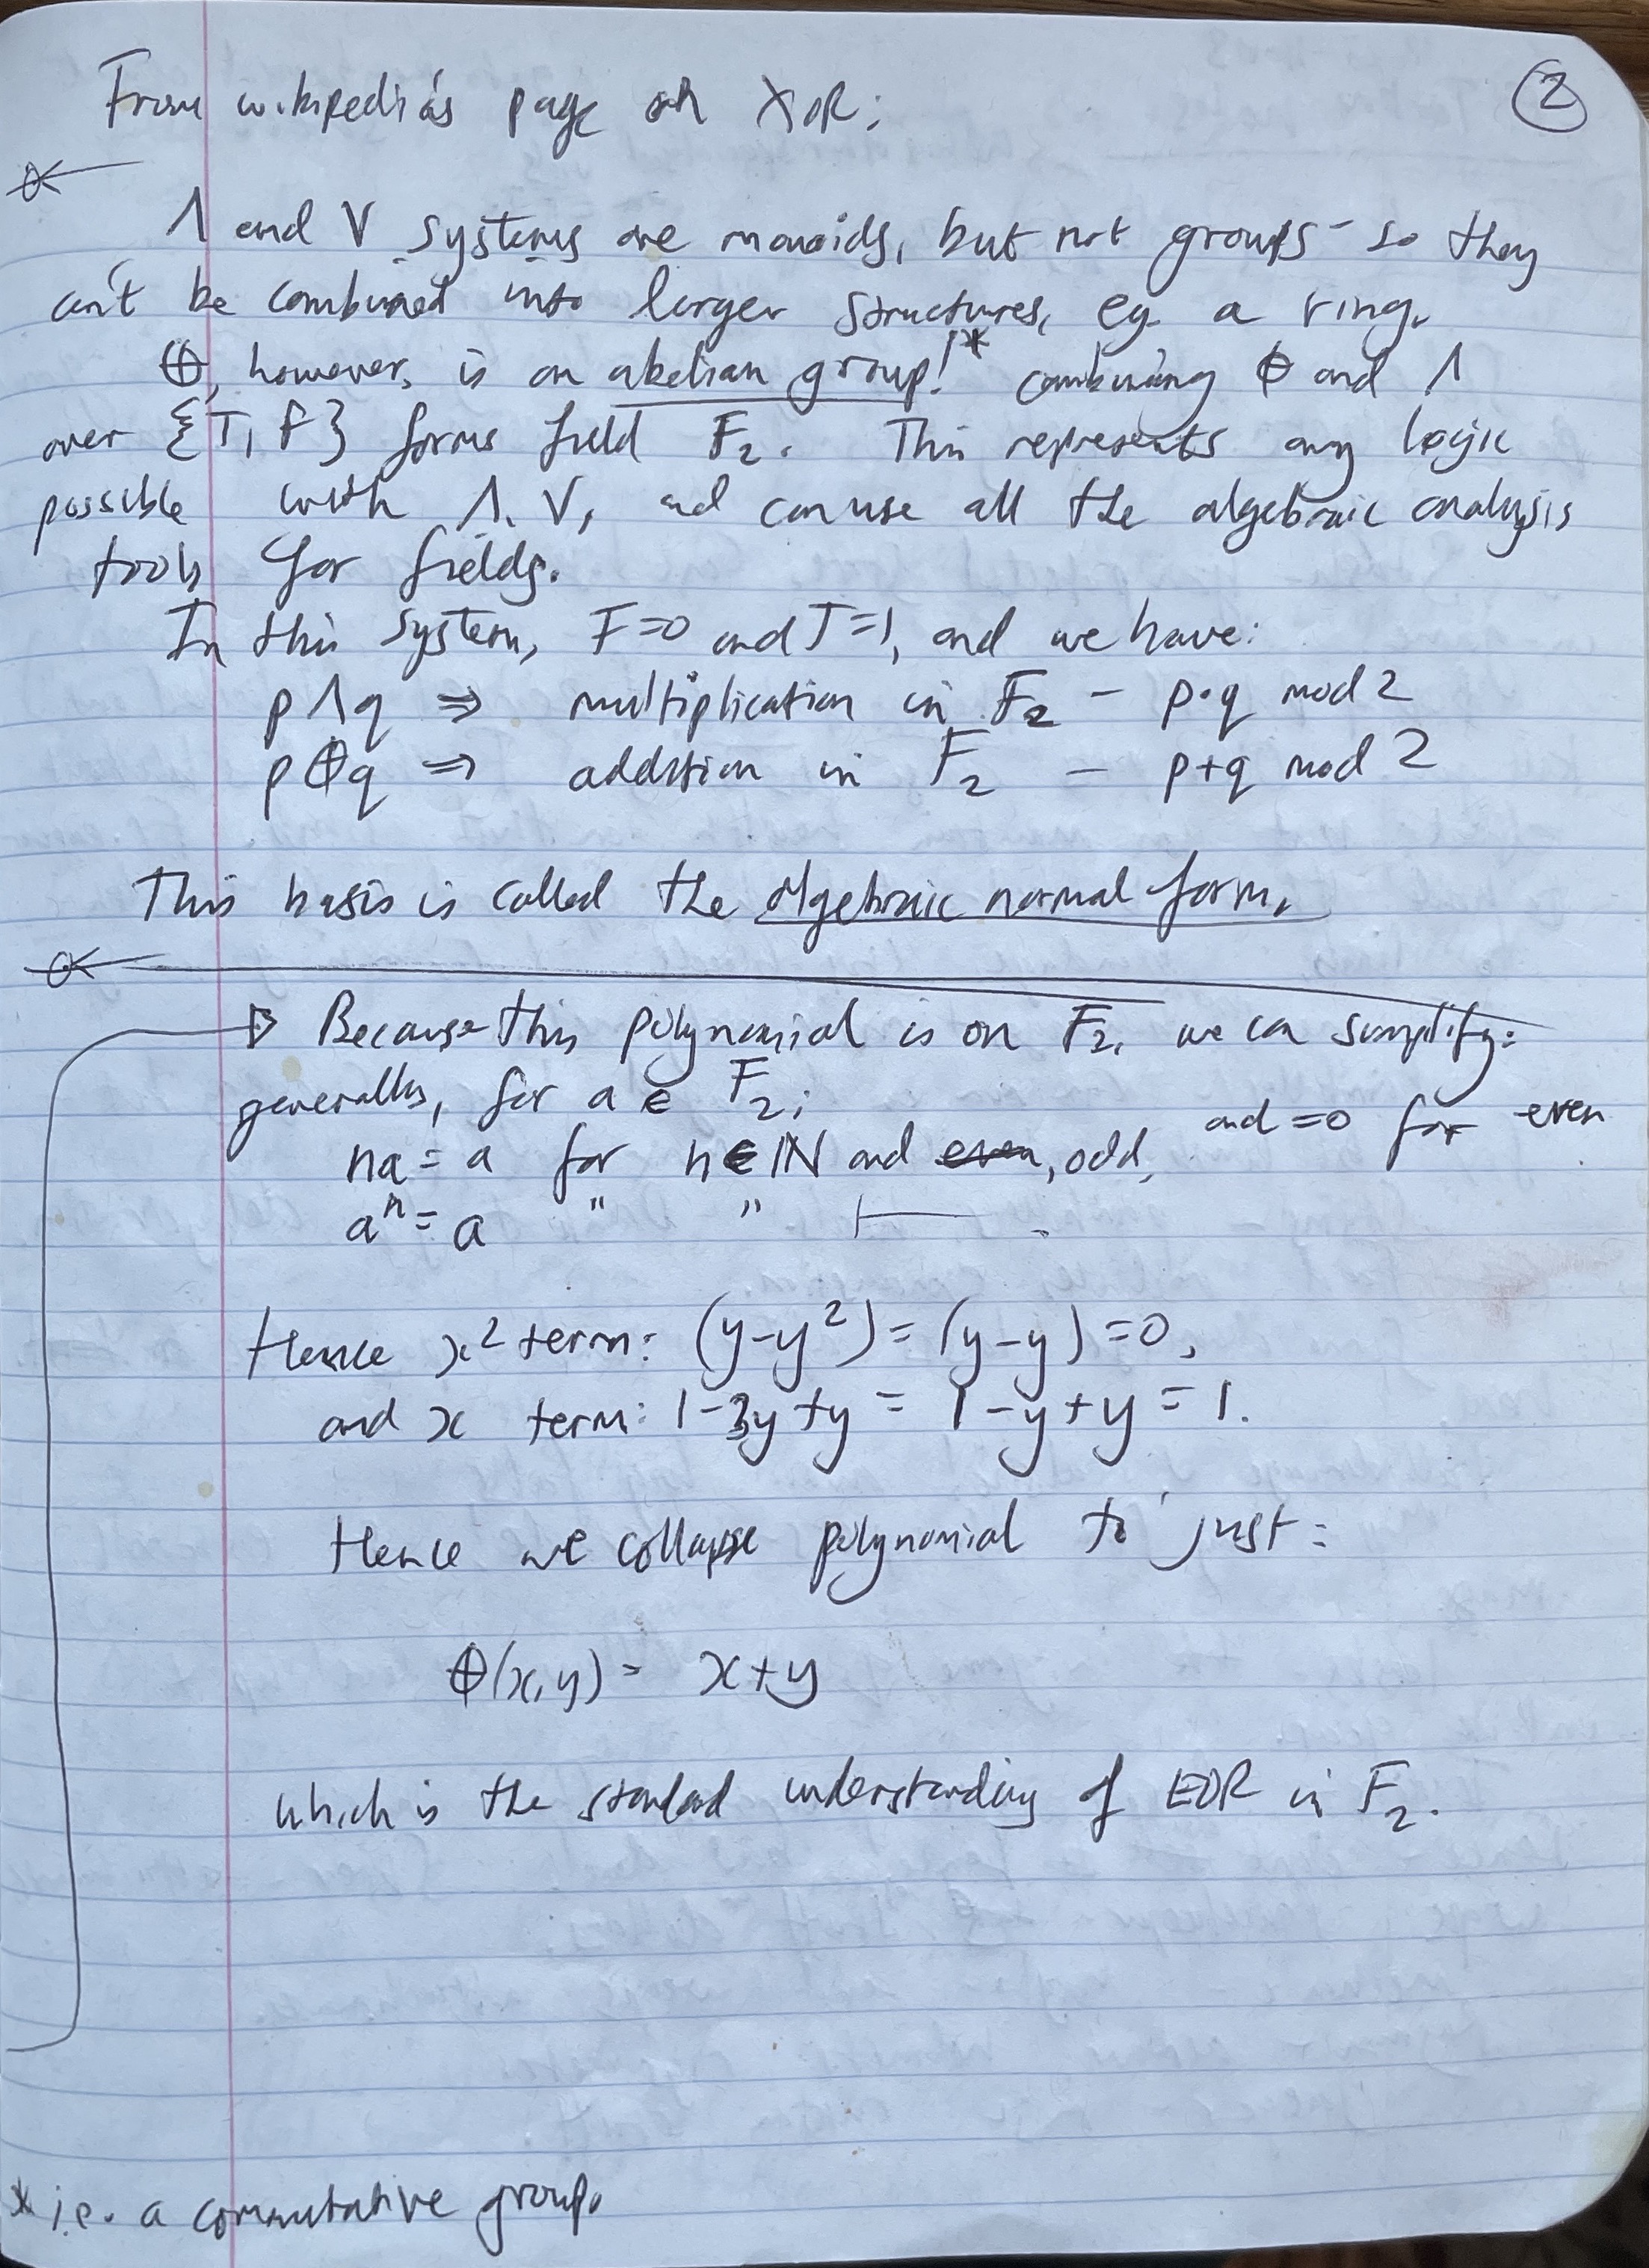 From wikipedia's page on XOR; ②
∧ and ∨ systems are monoids, but not groups - so they
can't be combined into larger structures, eg. a ring.
⊕, however, is an abelian group!* combining ⊕ and ∧
over {T, F} forms field F₂. This represents any logic
possible with ∧, ∨, and can use all the algebraic analysis
tools for fields.
In this system, F=0 and T=1, and we have:
p∧q ⇒ multiplication in F₂ - p·q mod 2
p⊕q ⇒ addition in F₂ - p+q mod 2
This basis is called the algebraic normal form.
▷ Because this polynomial is on F₂, we can simplify:
generally, for a ∈ F₂;
na = a for n ∈ ℕ and ~~even~~, odd, and =0 for even
aⁿ = a " "
Hence x² term: (y-y²) = (y-y) = 0,
and x term: 1-3y+y = 1-y+y = 1.
Hence we collapse polynomial to just:
⊕(x,y) = x+y
which is the standard understanding of EOR in F₂.
* i.e. a commutative group.